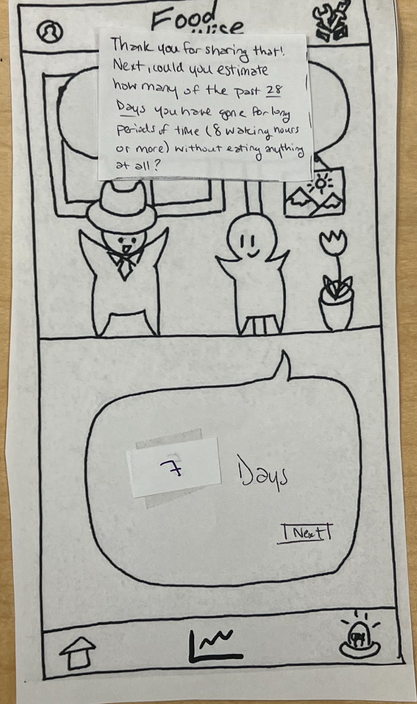 Food
Wise
Thank you for sharing that!
Next, could you estimate
how many of the past 28
Days you have gone for long
periods of time (8 waking hours
or more) without eating anything
at all?
7 Days
Next